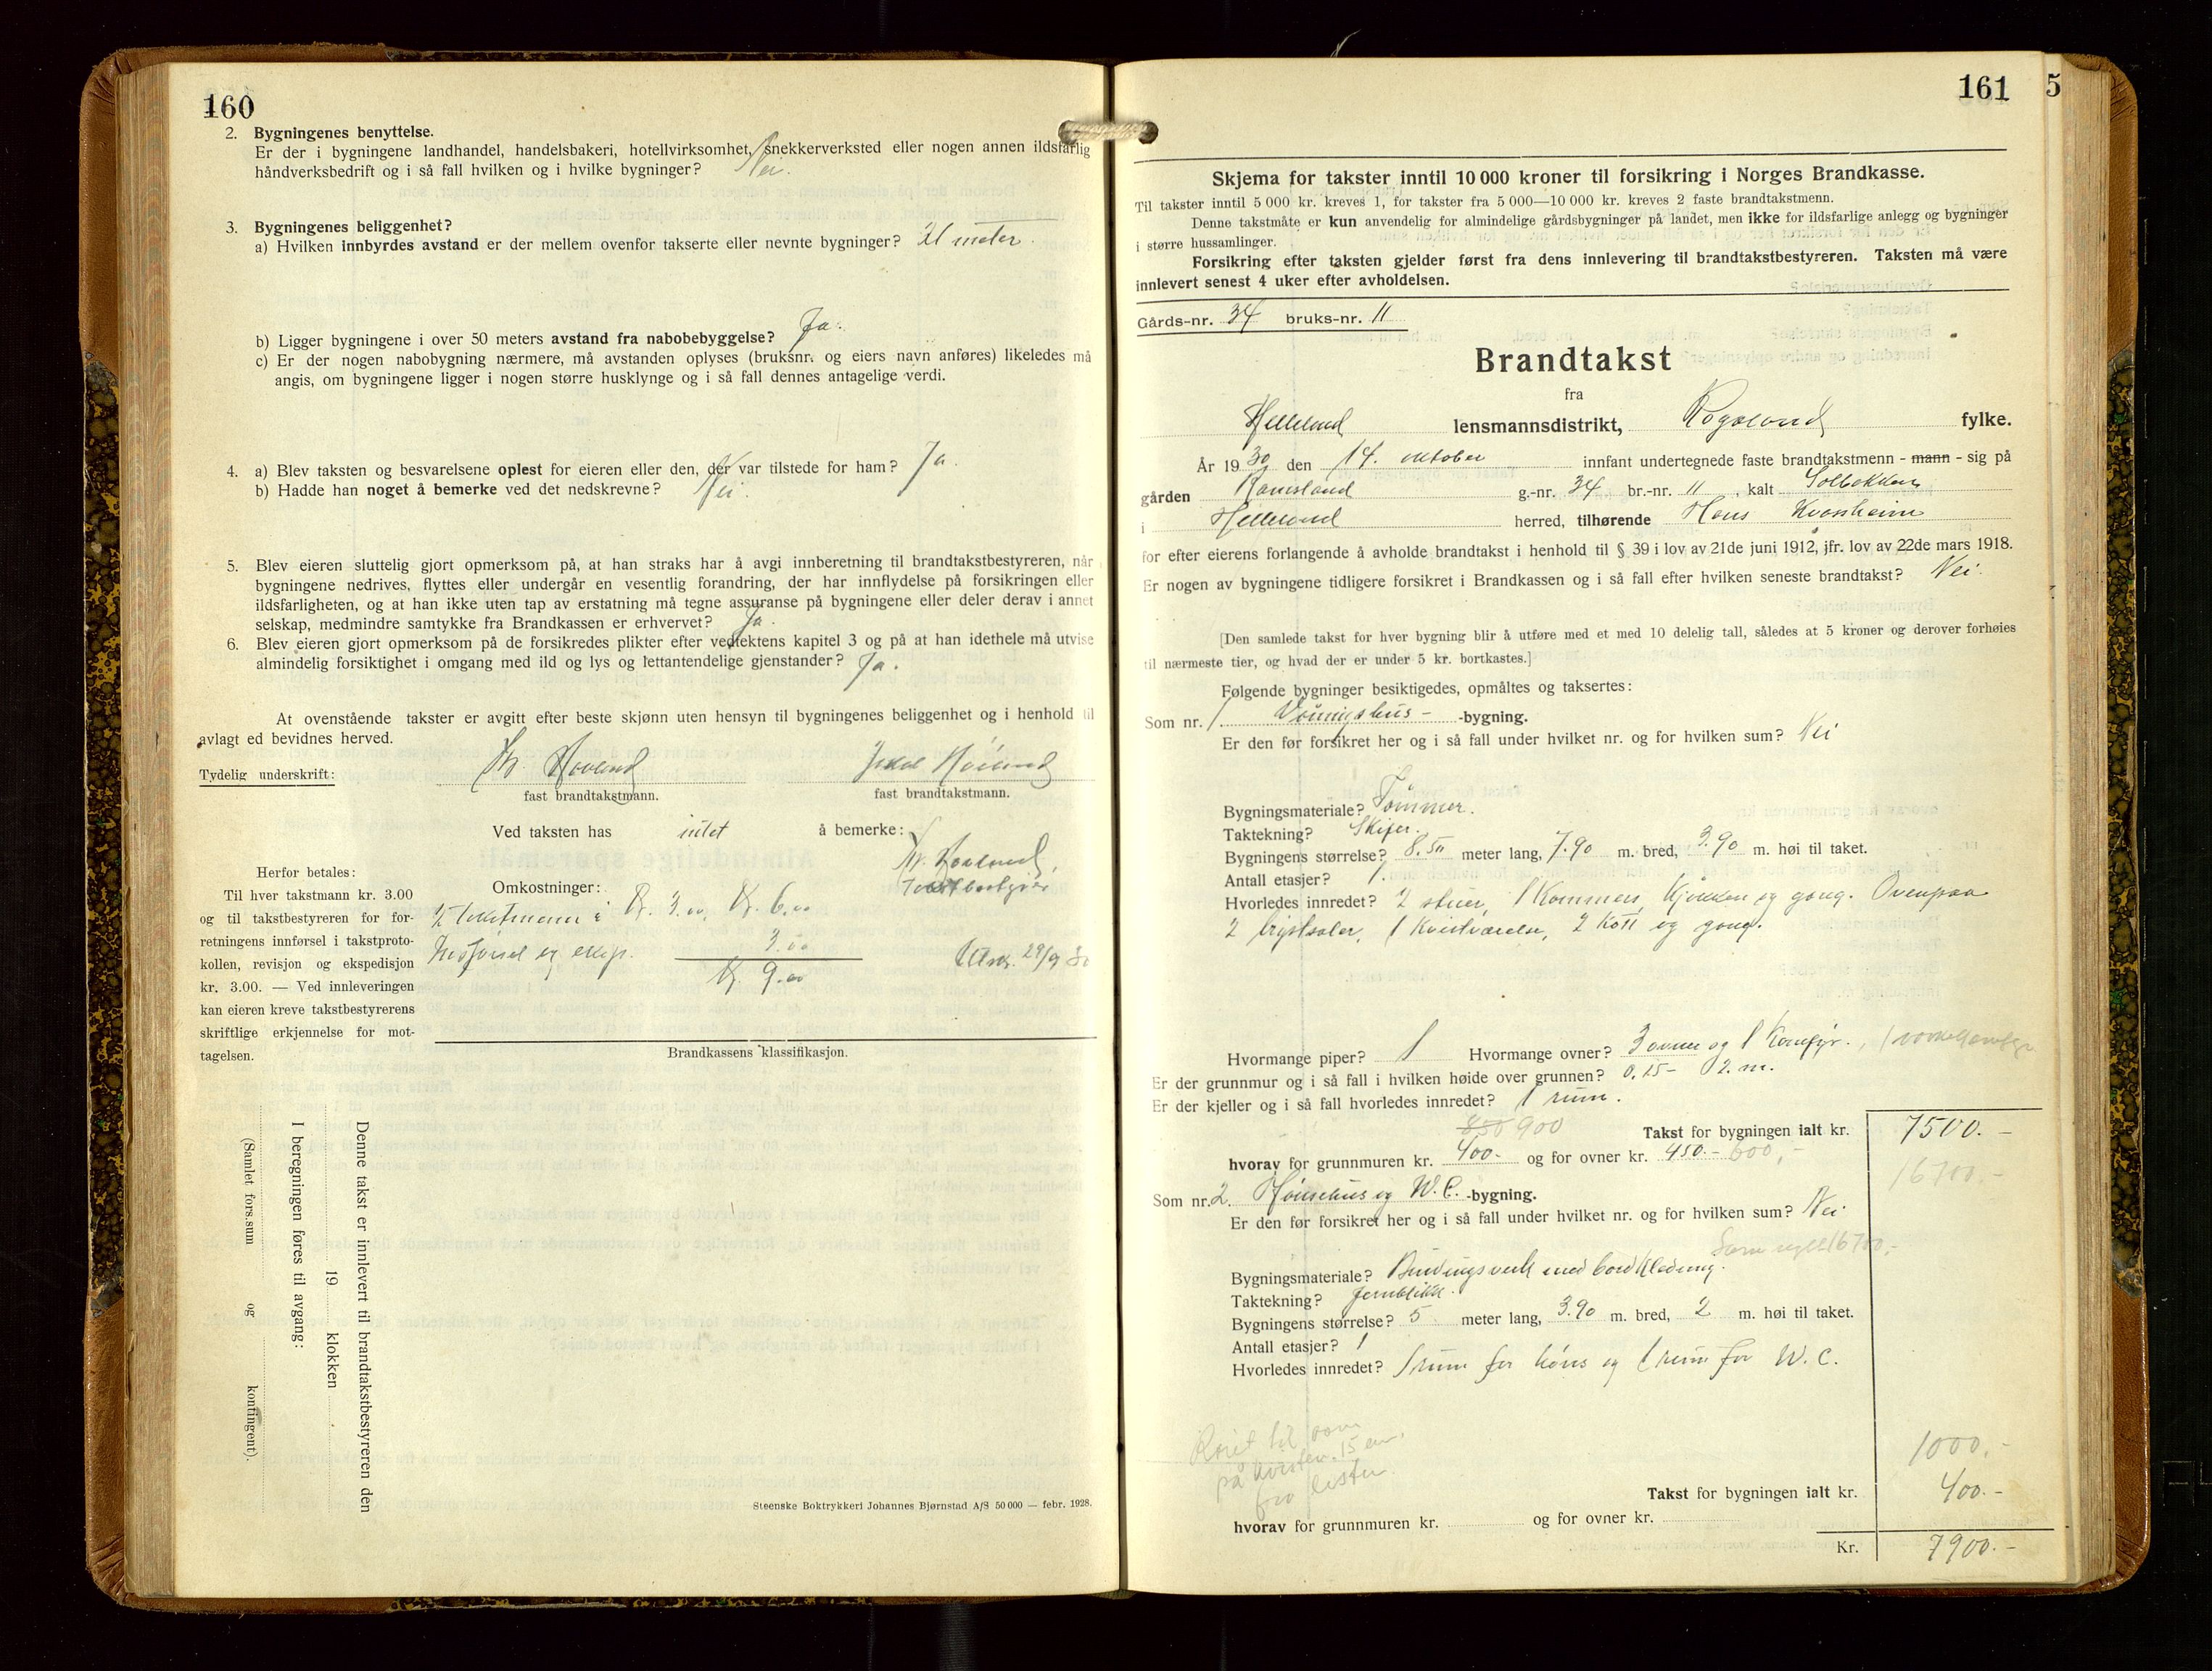 160
2. Bygningenes benyttelse.
Er der i bygningene landhandel, handelsbakeri, hotellvirksomhet, snekkerverksted eller nogen annen ildsfarlig
håndverksbedrift og i så fall hvilken og i hvilke bygninger? Nei.
3. Bygningenes beliggenhet?
a) Hvilken innbyrdes avstand er der mellem ovenfor takserte eller nevnte bygninger? 21 meter.
b) Ligger bygningene i over 50 meters avstand fra nabobebyggelse? Ja.
c) Er der nogen nabobygning nærmere, må avstanden oplyses (bruksnr. og eiers navn anføres) likeledes må
angis, om bygningene ligger i nogen større husklynge og i så fall dennes antagelige verdi.
4. a) Blev taksten og besvarelsene oplest for eieren eller den, der var tilstede for ham? Ja.
b) Hadde han noget å bemerke ved det nedskrevne? Nei.
5. Blev eieren sluttelig gjort opmerksom på, at han straks har å avgi innberetning til brandtakstbestyreren, når
bygningene nedrives, flyttes eller undergår en vesentlig forandring, der har innflydelse på forsikringen eller
ildsfarligheten, og at han ikke uten tap av erstatning må tegne assuranse på bygningene eller deler derav i annet
selskap, medmindre samtykke fra Brandkassen er erhvervet? Ja.
6. Blev eieren gjort opmerksom på de forsikredes plikter efter vedtektens kapitel 3 og på at han idethele må utvise
almindelig forsiktighet i omgang med ild og lys og lettantendelige gjenstander? Ja.
At ovenstående takster er avgitt efter beste skjønn uten hensyn til bygningenes beliggenhet og i henhold til
avlagt ed bevidnes herved.
Tydelig underskrift:
fast brandtakstmann. fast brandtakstmann.
Ved taksten has intet å bemerke:
Omkostninger:
2 Takstmenn à Kr. 3.00, Kr. 6.00
Innførsel og eksp. 3.00
Kr. 9.00
Herfor betales:
Til hver takstmann kr. 3.00
og til takstbestyreren for for-
retningens innførsel i takstproto-
kollen, revisjon og ekspedisjon
kr. 3.00. — Ved innleveringen
kan eieren kreve takstbestyrerens
skriftlige erkjennelse for mot-
tagelsen.
Brandkassens klassifikasjon.
Denne takst er innlevert til brandtakstbestyreren den
19 klokken .
I beregningen føres til avgang:
(Samlet fors.sum og kontingent).
Steenske Boktrykkeri Johannes Bjørnstad A/S 50 000 — febr. 1928.
161 5
Skjema for takster inntil 10 000 kroner til forsikring i Norges Brandkasse.
Til takster inntil 5 000 kr. kreves 1, for takster fra 5 000—10 000 kr. kreves 2 faste brandtakstmenn.
Denne takstmåte er kun anvendelig for almindelige gårdsbygninger på landet, men ikke for ildsfarlige anlegg og bygninger
i større hussamlinger.
Forsikring efter taksten gjelder først fra dens innlevering til brandtakstbestyreren. Taksten må være
innlevert senest 4 uker efter avholdelsen.
Gårds-nr. 34 bruks-nr. 11
Brandtakst
fra
Helleland lensmannsdistrikt, Rogaland fylke.
År 1930 den 14. oktober innfant undertegnede faste brandtakstmenn - mann - sig på
gården Ramsland g.-nr. 34 br.-nr. 11, kalt Solbakken
i Helleland herred, tilhørende Hans Kvassheim
for efter eierens forlangende å avholde brandtakst i henhold til § 39 i lov av 21de juni 1912, jfr. lov av 22de mars 1918.
Er nogen av bygningene tidligere forsikret i Brandkassen og i så fall efter hvilken seneste brandtakst? Nei.
[Den samlede takst for hver bygning blir å utføre med et med 10 delelig tall, således at 5 kroner og derover forhøies
til nærmeste tier, og hvad der er under 5 kr. bortkastes.]
Følgende bygninger besiktigedes, opmåltes og taksertes:
Som nr. 1. Våningshus- -bygning.
Er den før forsikret her og i så fall under hvilket nr. og for hvilken sum? Nei
Bygningsmateriale? Tømmer.
Taktekning? Skifer.
Bygningens størrelse? 8.50 meter lang, 7.90 m. bred, 3.90 m. høi til taket.
Antall etasjer? 1.
Hvorledes innredet? 2 stuer, 1 Kammer, Kjøkken og gang. Ovenpaa
2 brystsaler, 1 Kvistværelse, 2 Kott og gang.
Hvormange piper? 1 Hvormange ovner? 3 ovner og 1 Komfyr.
Er der grunnmur og i så fall i hvilken høide over grunnen? 0.15 - 2. m.
Er der kjeller og i så fall hvorledes innredet? 1 rum.
850 900 Takst for bygningen ialt kr. 7500.-
hvorav for grunnmuren kr. 400.- og for ovner kr. 450.- 600,- 16700.-
Som nr. 2. Hønsehus og W.C. -bygning.
Er den før forsikret her og i så fall under hvilket nr. og for hvilken sum? Nei
16700,-
Bygningsmateriale? Bindingsverk med bordkledning.
Taktekning? Jernblikk.
Bygningens størrelse? 5 meter lang, 3.90 m. bred, 2 m. høi til taket.
Antall etasjer? 1
Hvorledes innredet? 1 rum for høns og 1 rum for W.C.
1000.-
Takst for bygningen ialt kr. 400.-
hvorav for grunnmuren kr. og for ovner kr.
Kr. 7900.-